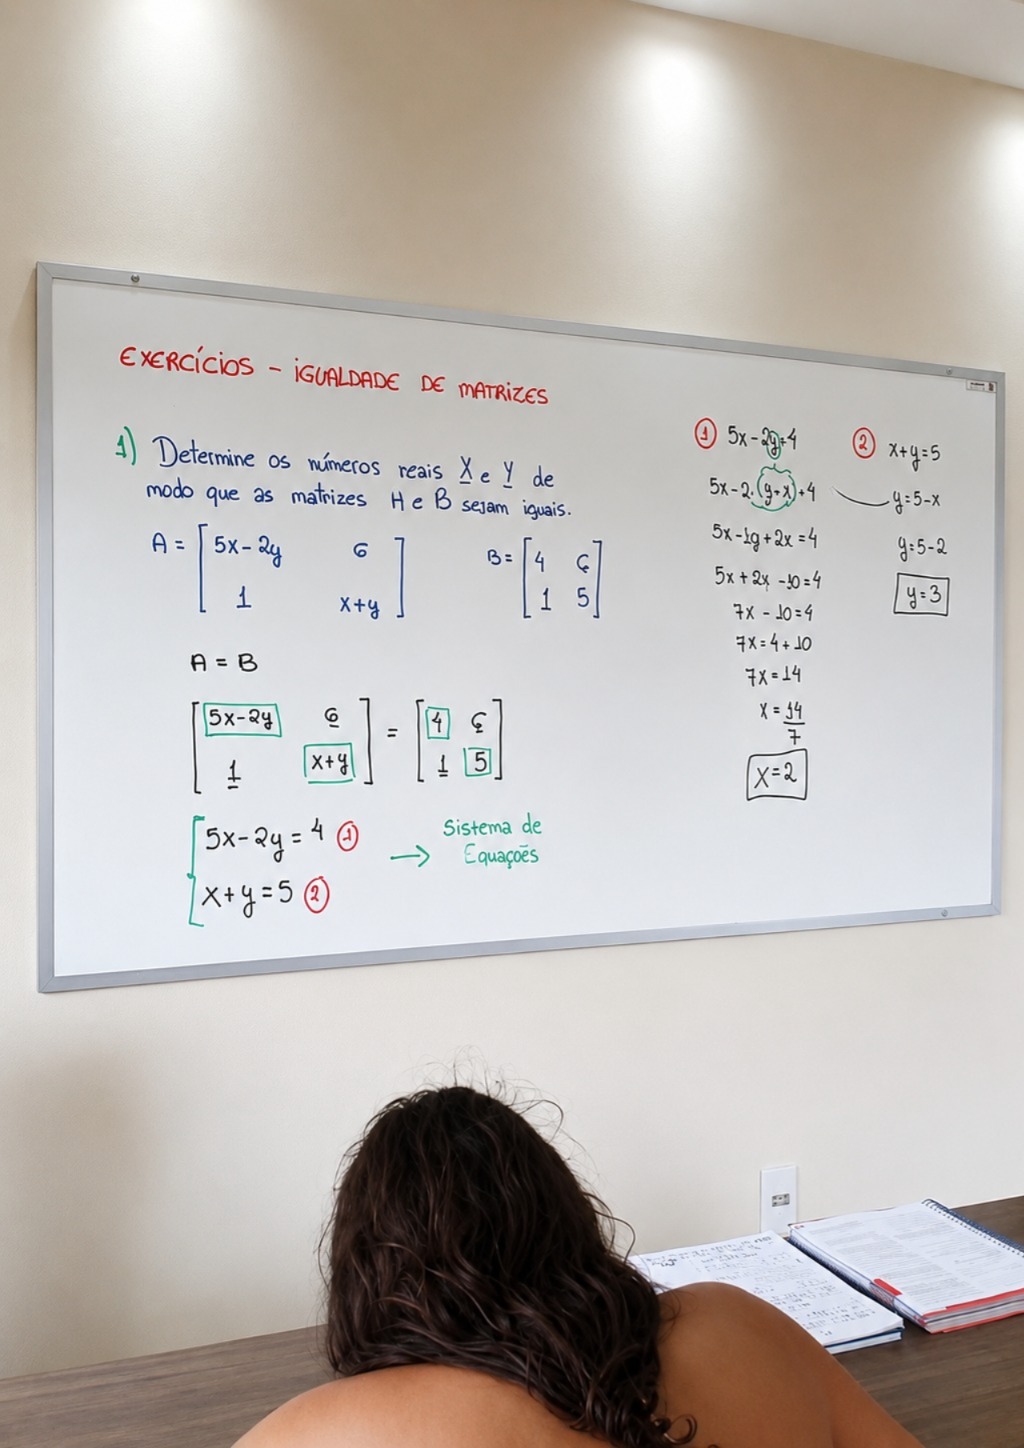 EXERCÍCIOS - IGUALDADE DE MATRIZES
1) Determine os números reais X e Y de
modo que as matrizes A e B sejam iguais.
A = [ 5x-2y 6
1 x+y ]
B = [ 4 6
1 5 ]
A = B
[ 5x-2y 6
1 x+y ] = [ 4 6
1 5 ]
{ 5x-2y = 4 ①
x+y = 5 ②
→ Sistema de
Equações
① 5x-2y=4
5x-2.(y+x)+4
5x-1g+2x=4
5x+2x-10=4
7x-10=4
7x=4+10
7x=14
x=14
7
x=2
② x+y=5
y=5-x
y=5-2
y=3